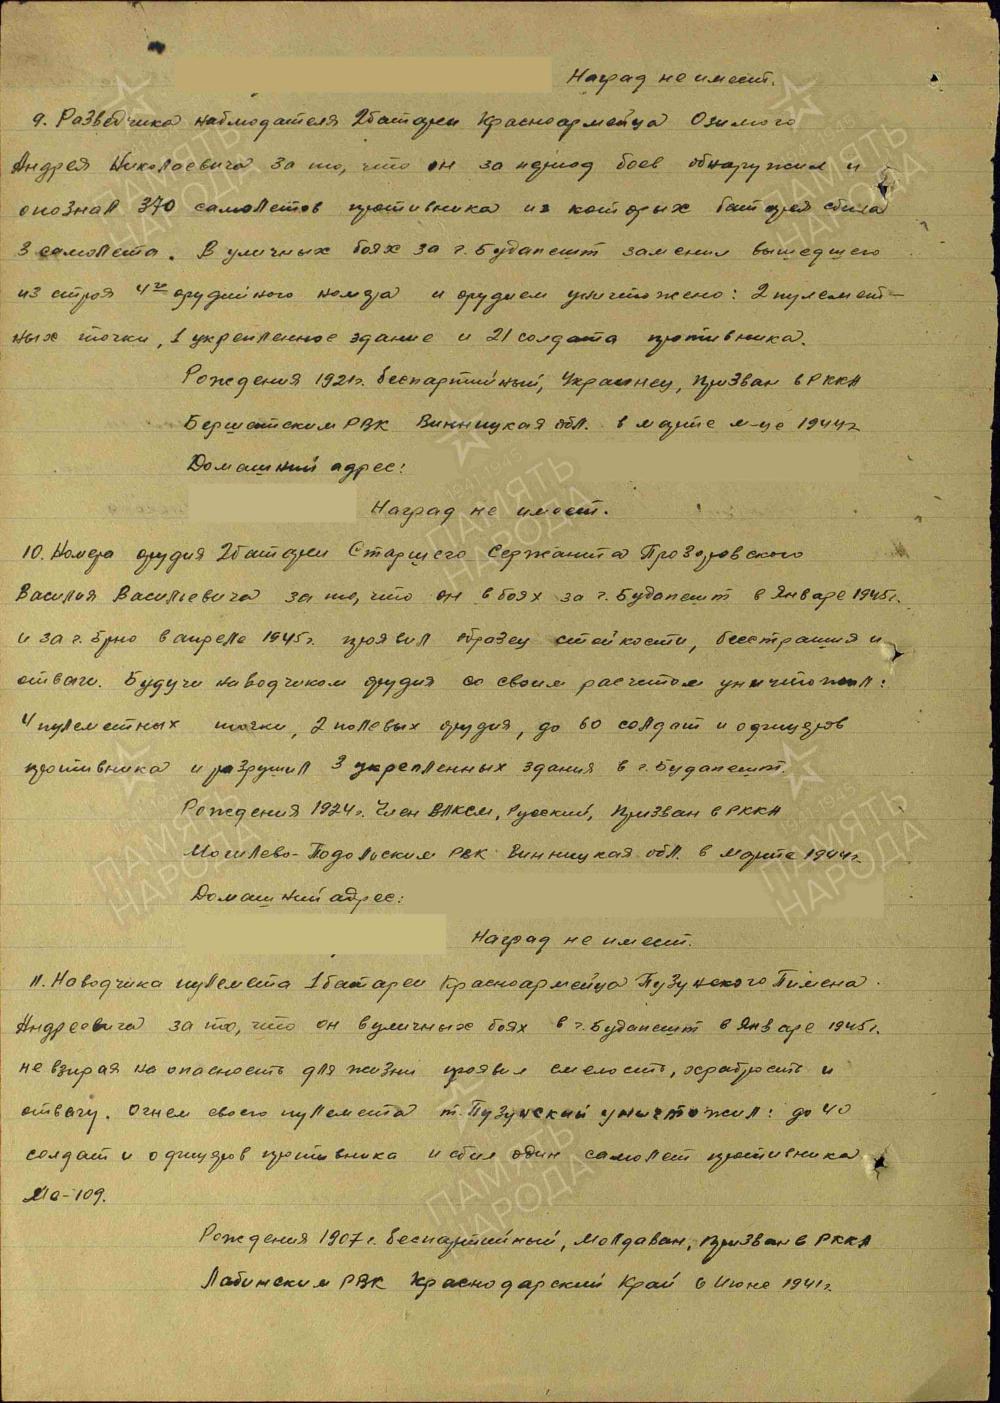 Наград не имеет.
9. Разведчика наблюдателя 2батареи Красноармейца Озимого
Андрея Николаевича за то, что он за период боев обнаружил и
опознал 370 самолетов противника из которых батарея сбила
3 самолета. В уличных боях за г. Будапешт заменил вышедшего
из строя 4го орудийного номера и орудием уничтожено: 2 пулемет-
ных точки, 1 укрепленное здание и 21 солдата противника.
Рождения 1921г. беспартийный, Украинец, призван в РККА
Бершатским РВК Винницкая обл. в марте м-це 1944г
Домашний адрес:
Наград не имеет.
10. Номера орудия 2батареи Старшего Сержанта Прозоровского
Василия Васильевича за то, что он в боях за г. Будапешт в Январе 1945г.
и за г. Брно в апреле 1945г. проявил образец стойкости, бесстрашия и
отваги. Будучи наводчиком орудия со своим расчетом уничтожил:
4 пулеметных точки, 2 полевых орудия, до 60 солдат и офицеров
противника и разрушил 3 укрепленных здания в г. Будапешт.
Рождения 1924г. Член ВЛКСМ, Русский, призван в РККА
Могилево-Подольским РВК Винницкая обл. в марте 1944г.
Домашний адрес:
Наград не имеет.
11. Наводчика пулемета 1батареи Красноармейца Пузунского Пимена
Андреевича за то, что он в уличных боях в г. Будапешт в Январе 1945г.
не взирая на опасность для жизни проявил смелость, храбрость и
отвагу. Огнем своего пулемета т. Пузунский уничтожил: до 40
солдат и офицеров противника и сбил один самолет противника
Ме-109.
Рождения 1907г. беспартийный, Молдаван, призван в РККА
Лабинским РВК Краснодарский Край в Июне 1941г.
ПАМЯТЬ
НАРОДА
1941-1945